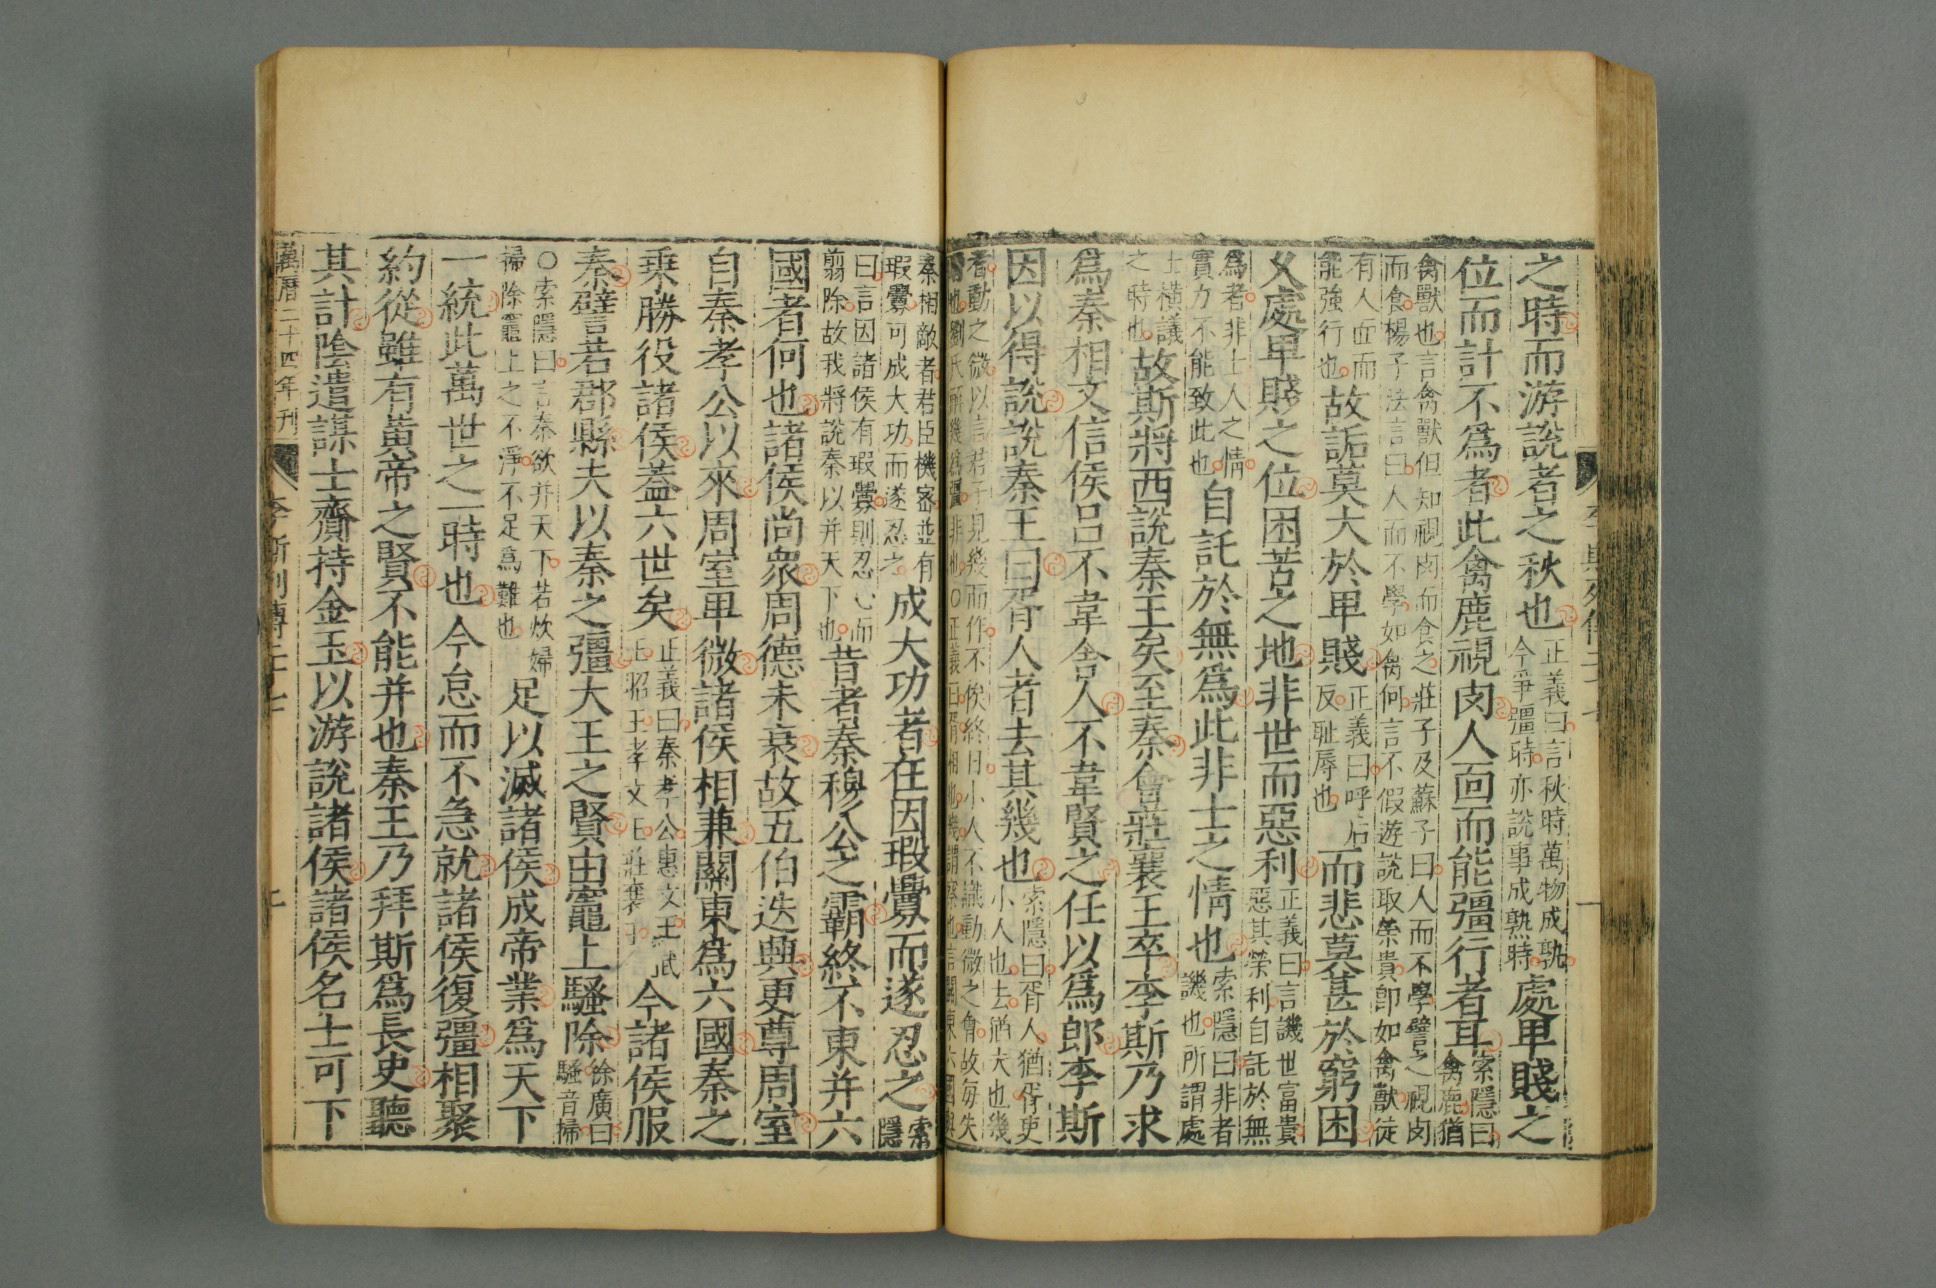 之時而游說者之秋也正義曰言秋時萬物成熟今爭彊時亦說事成熟時處卑賤之
位而計不爲者此禽鹿視肉人面而能彊行者耳索隱曰禽鹿猶
禽獸也言禽獸但知視肉而食之莊子及蘇子曰人而不學譬之視肉而食楊子法言曰人而不學如禽何言不假遊說取榮貴卽如禽獸徒
有人面而能強行也故詬莫大於卑賤正義曰呼后反恥辱也而悲莫甚於窮困
久處卑賤之位困苦之地非世而惡利正義曰言譏世富貴惡其榮利自託於無
爲者非士人之情實力不能致此也自託於無爲此非士之情也索隱曰非者譏也所謂處
士橫議之時也故斯將西說秦王矣至秦會莊襄王卒李斯乃求
爲秦相文信侯呂不韋舍人不韋賢之任以爲郎李斯
因以得說說秦王曰胥人者去其幾也索隱曰胥人猶胥吏小人也去猶失也幾
者動之微以言君子見幾而作不俟終日小人不識動微之會故每失
秦相敵者君臣機密並有瑕釁可成大功而遂忍之成大功者在因瑕釁而遂忍之索隱
曰言因諸侯有瑕釁則忍心而翦除故我將說秦以并天下也昔者秦穆公之霸終不東并六
國者何也諸侯尚衆周德未衰故五伯迭興更尊周室
自秦孝公以來周室卑微諸侯相兼關東爲六國秦之
乘勝役諸侯蓋六世矣正義曰秦孝公惠文王武王昭王孝文王莊襄王今諸侯服
秦譬若郡縣夫以秦之彊大王之賢由竈上騷除徐廣曰騷音掃
○索隱曰言秦欲并天下若炊婦掃除竈上之不淨不足爲難也足以滅諸侯成帝業爲天下
一統此萬世之一時也今怠而不急就諸侯復彊相聚
約從雖有黃帝之賢不能并也秦王乃拜斯爲長史聽
其計陰遣謀士齎持金玉以游說諸侯諸侯名士可下
萬曆二十四年刊 李斯列傳二十七